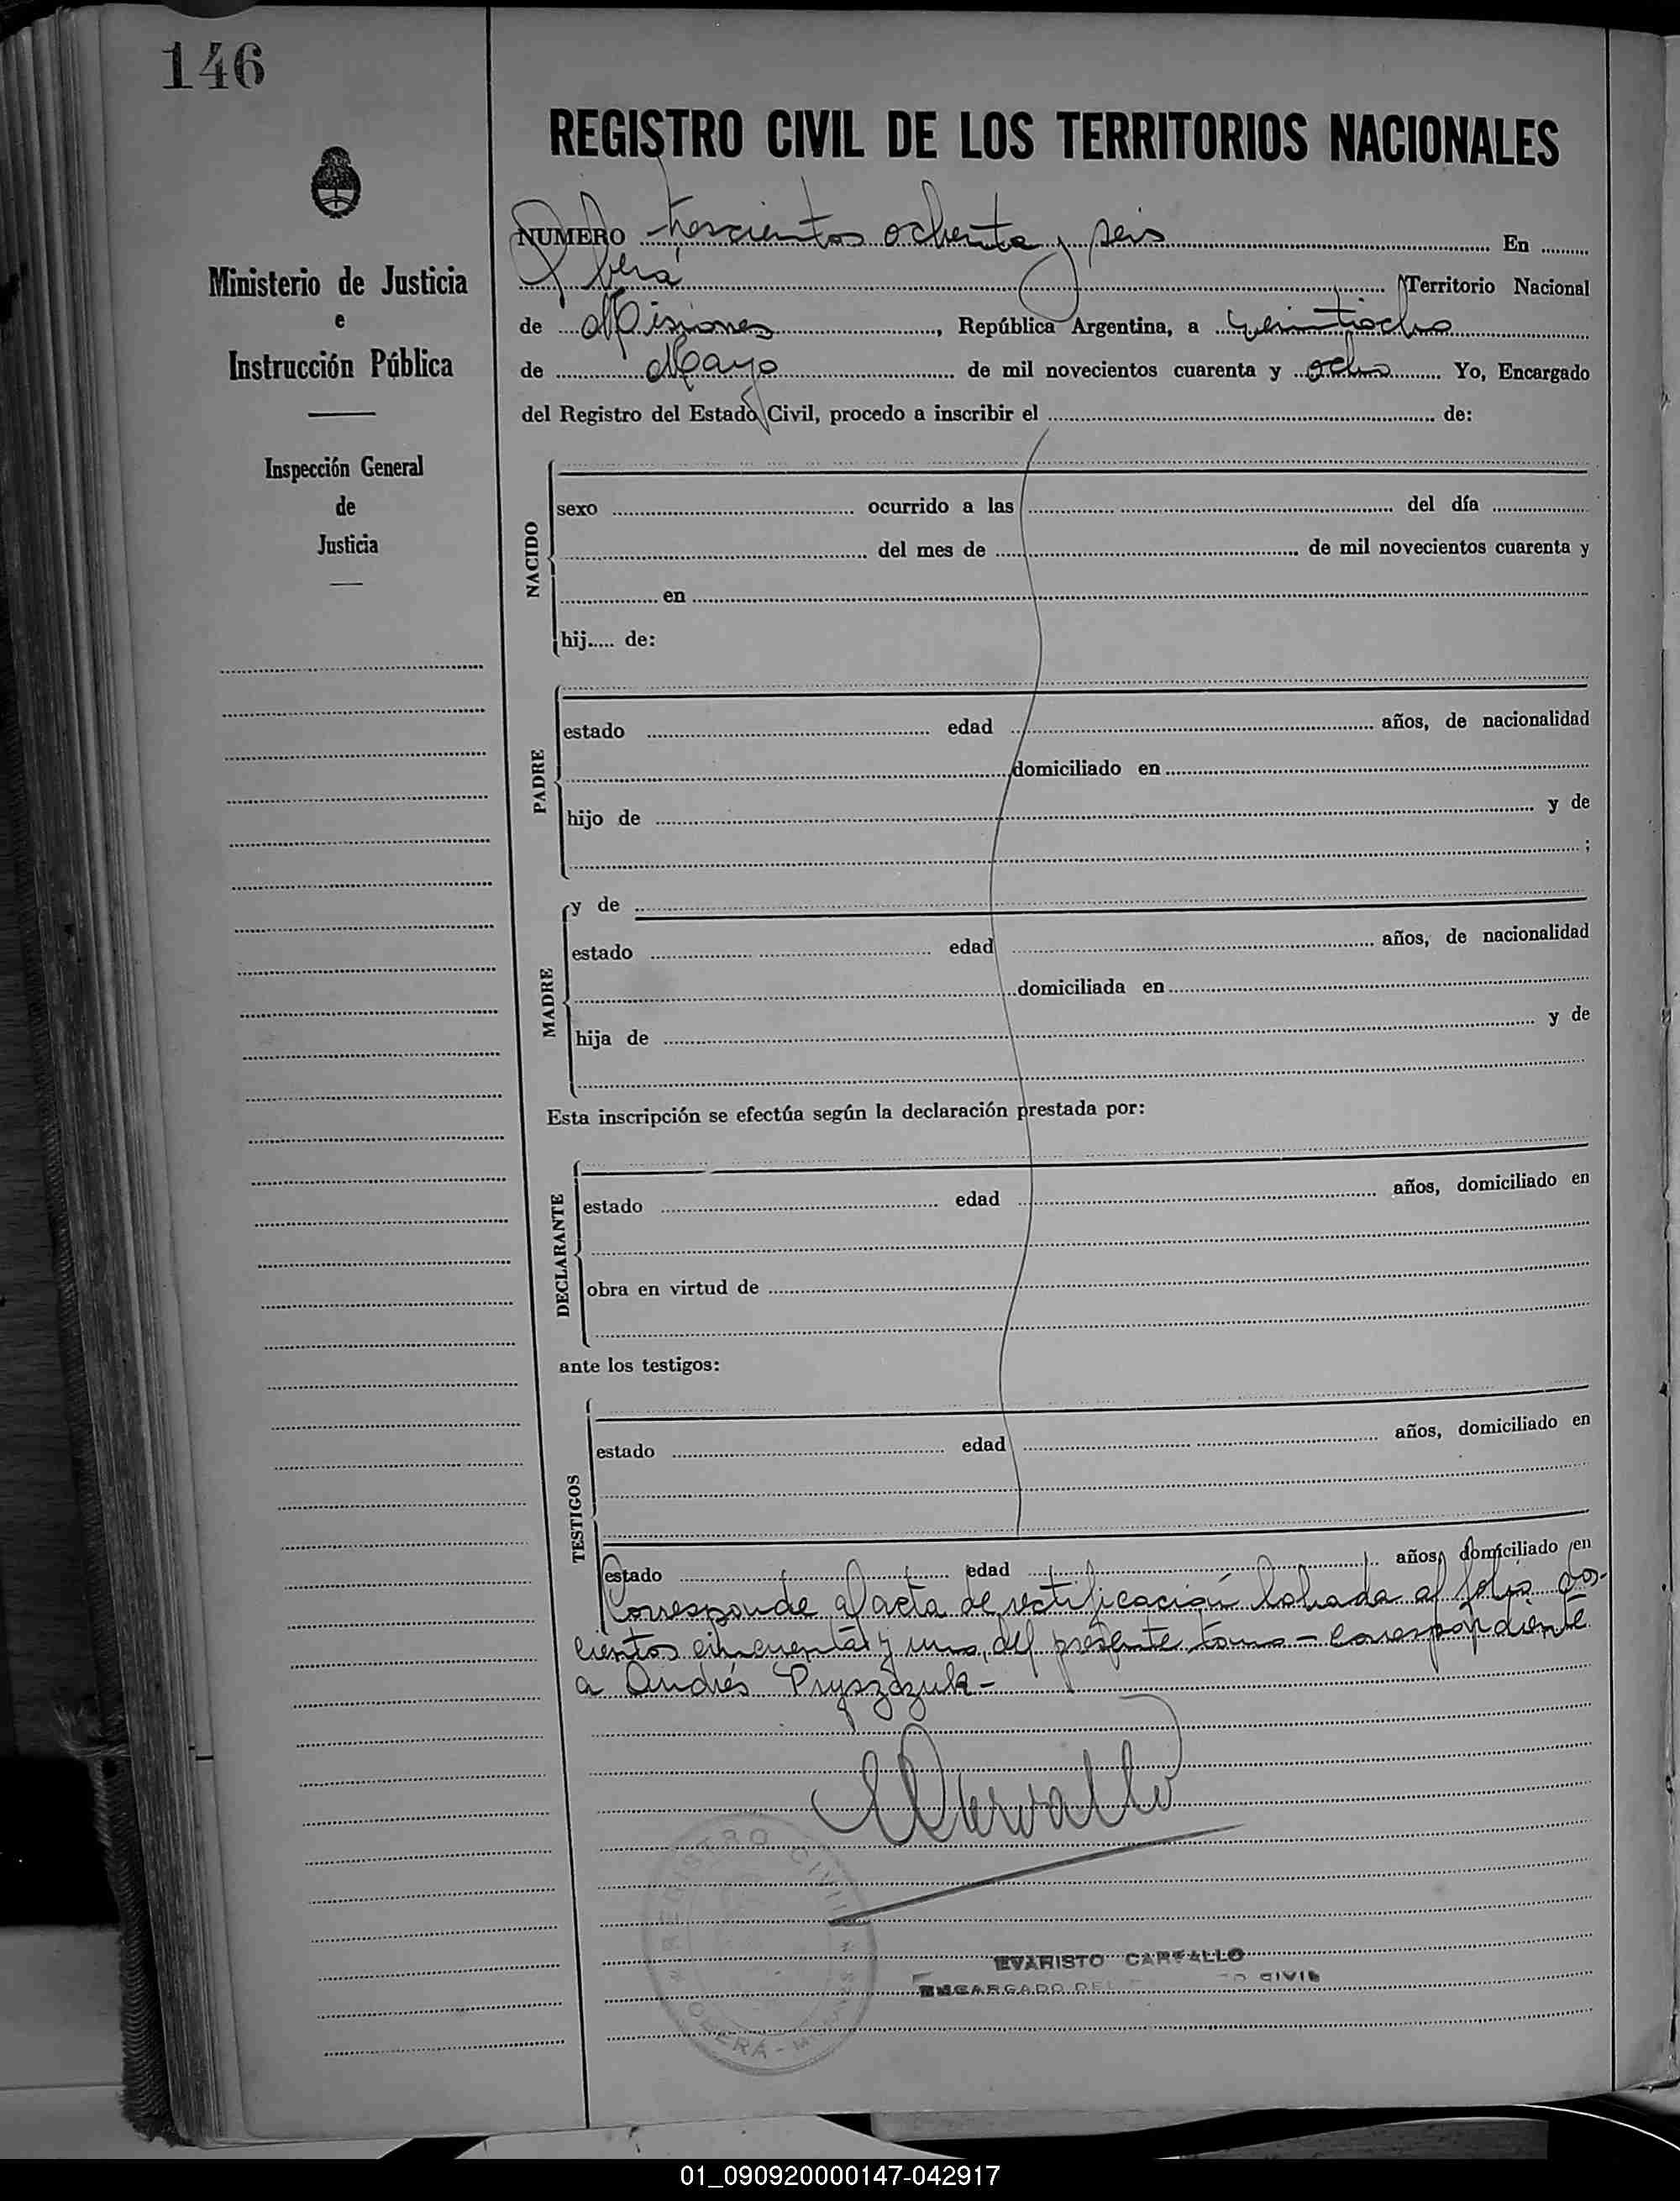 146
REGISTRO CIVIL DE LOS TERRITORIOS NACIONALES
Ministerio de Justicia
e
Instrucción Pública
Inspección General
de
Justicia
NUMERO trescientos ochenta y seis En
Oberá Territorio Nacional
de Misiones, República Argentina, a veintiocho
de Mayo de mil novecientos cuarenta y ocho Yo, Encargado
del Registro del Estado Civil, procedo a inscribir el de:
NACIDO
sexo ocurrido a las del día
del mes de de mil novecientos cuarenta y
en
hij..... de:
PADRE
estado edad años, de nacionalidad
domiciliado en
hijo de y de
;
MADRE
y de
estado edad años, de nacionalidad
domiciliada en
hija de y de
Esta inscripción se efectúa según la declaración prestada por:
DECLARANTE
estado edad años, domiciliado en
obra en virtud de
ante los testigos:
TESTIGOS
estado edad años, domiciliado en
estado edad años, domiciliado en
Corresponde al acta de rectificación labrada al folio dos-
cientos cincuenta y uno, del presente tomo - correspondiente
a Andrés Pryszczuk -
ECarvallo
REGISTRO CIVIL
OBERÁ -
EVARISTO CARVALLO
ENCARGADO DEL CIVIL
01_090920000147-042917